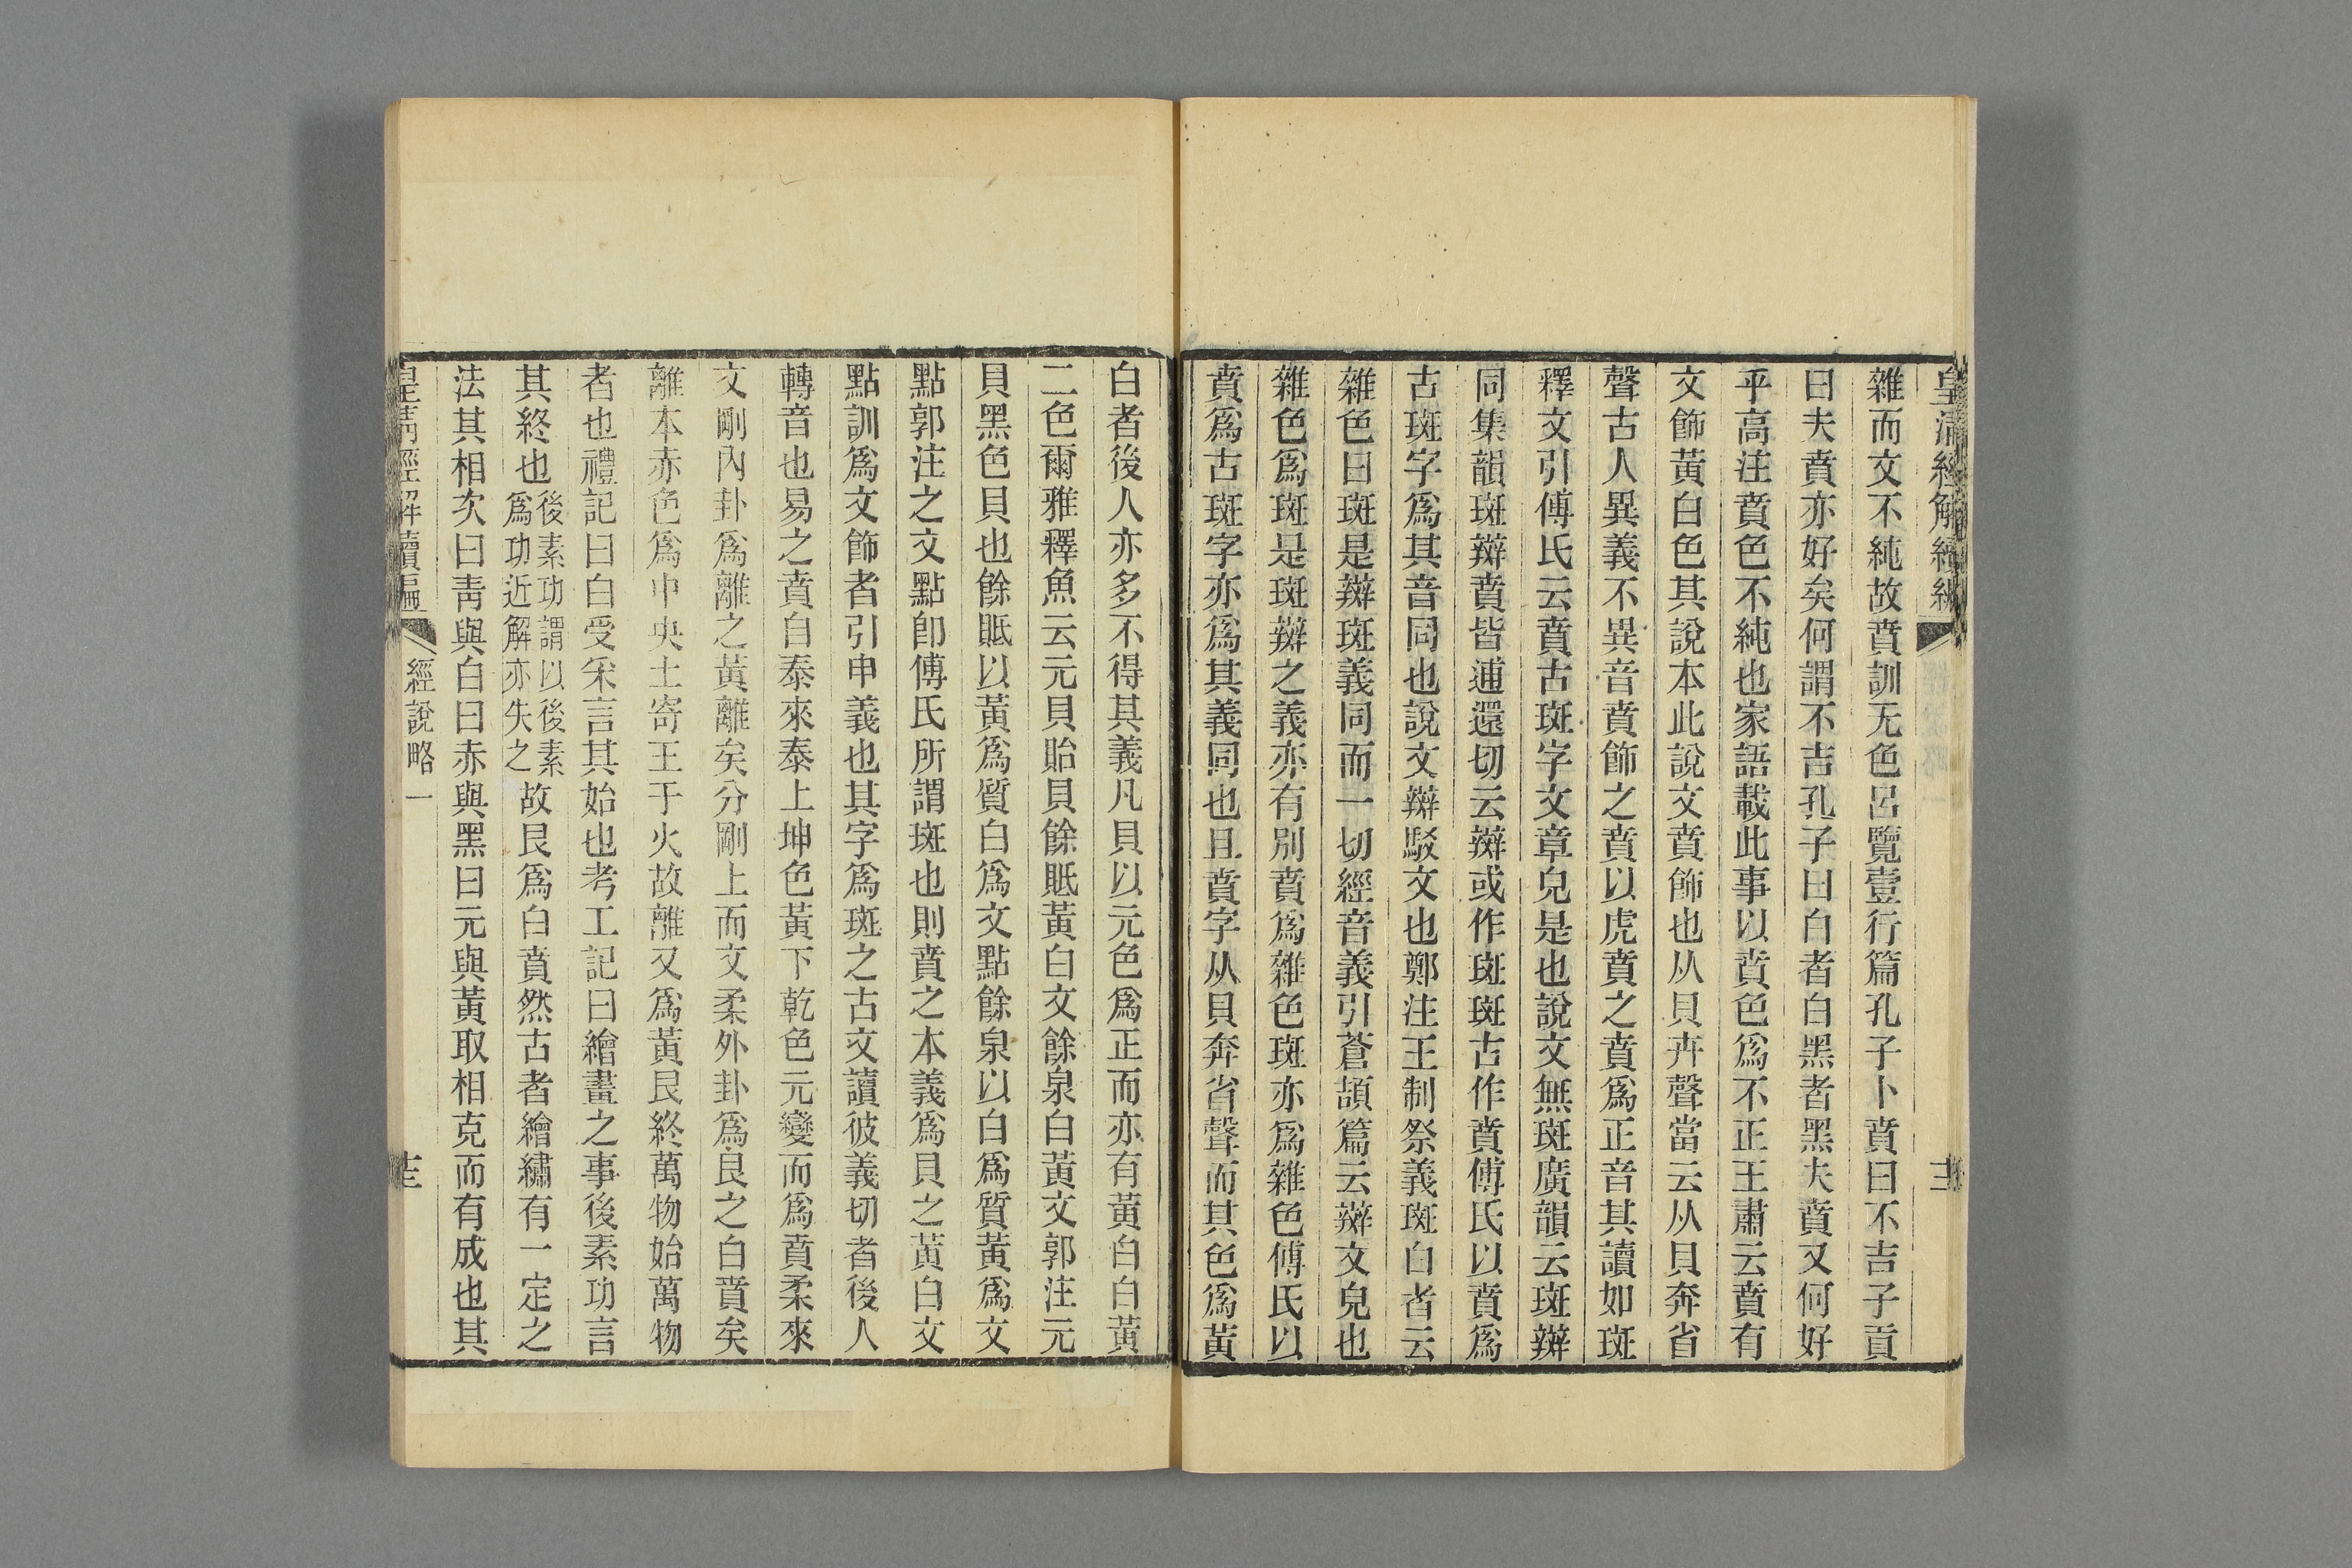 皇清經解續編
雜而文不純故賁訓无色呂覽壹行篇孔子卜賁曰不吉子貢
曰夫賁亦好矣何謂不吉孔子曰白者白黑者黑夫賁又何好
乎高注賁色不純也家語載此事以賁色爲不正王肅云賁有
文飾黃白色其說本此說文賁飾也从貝卉聲當云从貝奔省
聲古人異義不異音賁飾之賁以虎賁之賁爲正音其讀如斑
釋文引傅氏云賁古斑字文章皃是也說文無斑廣韻云斑辬
同集韻斑辬賁皆逋還切云辬或作斑斑古作賁傅氏以賁爲
古斑字爲其音同也說文辬駁文也鄭注王制祭義斑白者云
雜色曰斑是辬斑義同而一切經音義引蒼頡篇云辬文皃也
雜色爲斑是斑辬之義亦有別賁爲雜色斑亦爲雜色傅氏以
賁爲古斑字亦爲其義同也且賁字从貝奔省聲而其色爲黃
白者後人亦多不得其義凡貝以元色爲正而亦有黃白白黃
二色爾雅釋魚云元貝貽貝餘貾黃白文餘泉白黃文郭注元
貝黑色貝也餘貾以黃爲質白爲文點餘泉以白爲質黃爲文
點郭注之文點卽傅氏所謂斑也則賁之本義爲貝之黃白文
點訓爲文飾者引申義也其字爲斑之古文讀彼義切者後人
轉音也易之賁自泰來泰上坤色黃下乾色元變而爲賁柔來
文剛內卦爲離之黃離矣分剛上而文柔外卦爲艮之白賁矣
離本赤色爲中央土寄王于火故離又爲黃艮終萬物始萬物
者也禮記曰白受采言其始也考工記曰繪畫之事後素功言
其終也後素功謂以後素爲功近解亦失之故艮爲白賁然古者繪繡有一定之
法其相次曰靑與白曰赤與黑曰元與黃取相克而有成也其
皇淸經解續編
經說略一